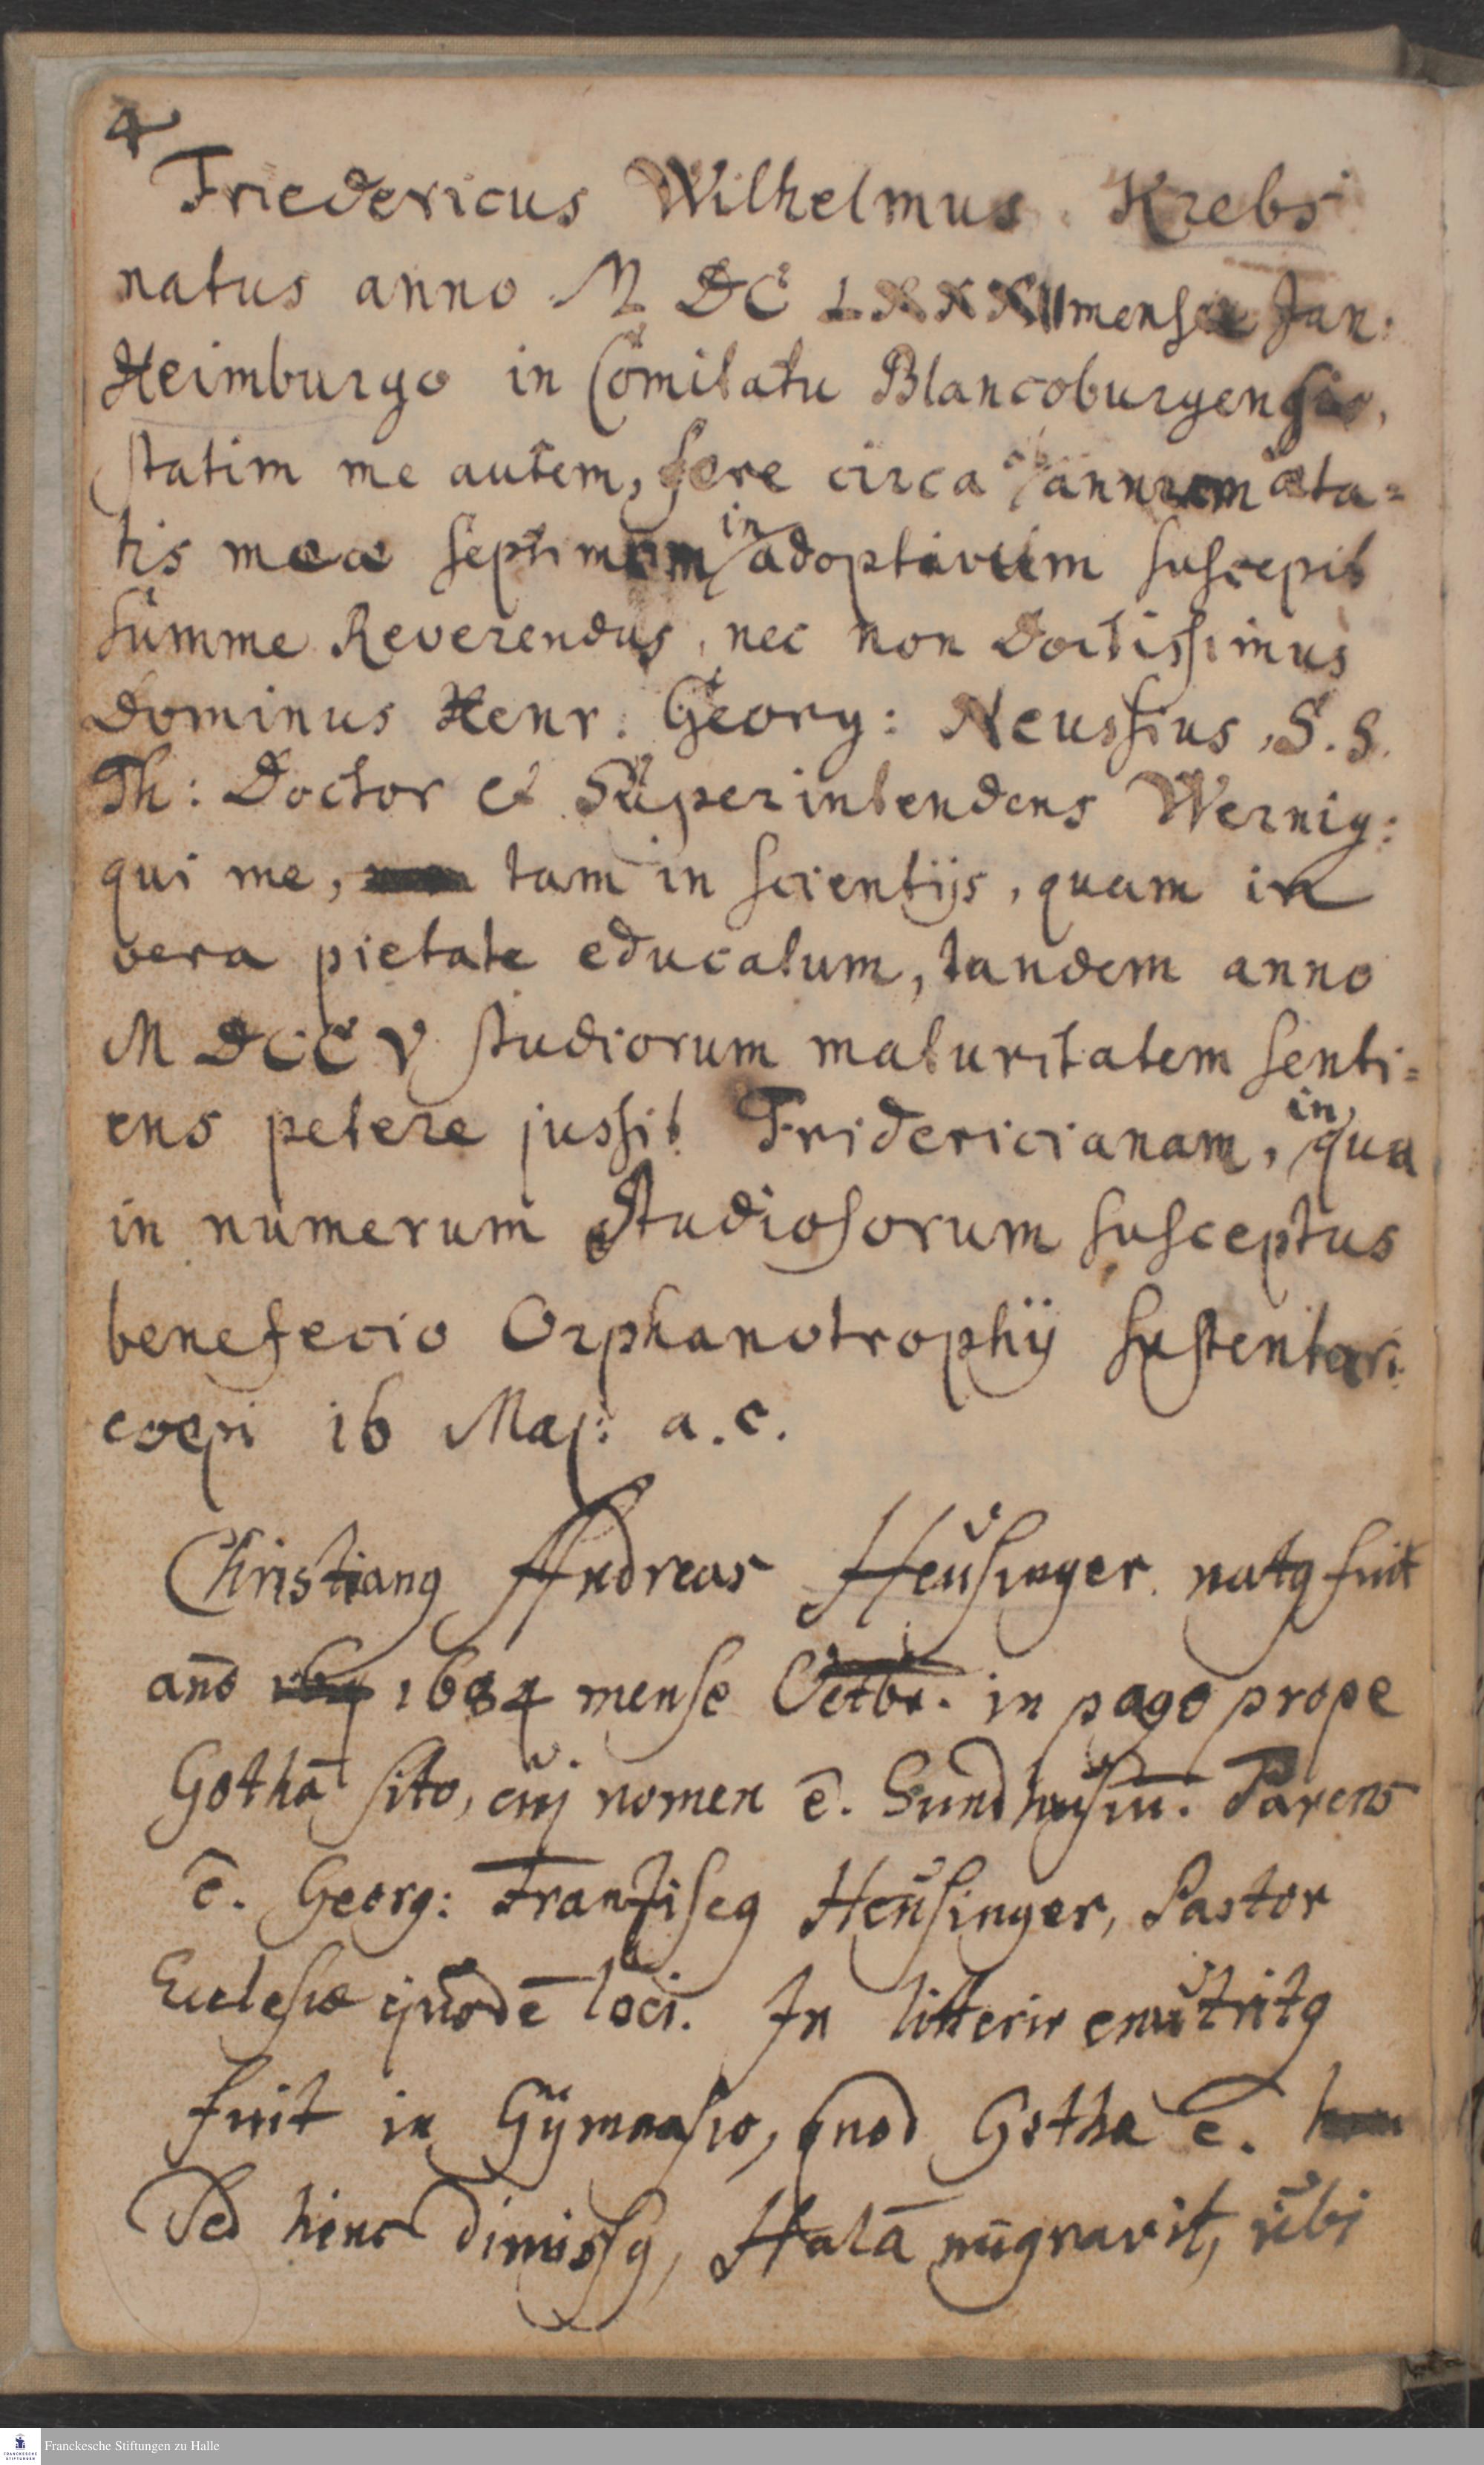 4
Friedericus Wilhelmus Krebs
natus anno M DC LXXXII mense Jan:
Heimburgo in Comitatu Blancoburgensi,
statim me autem, fere circa annum æta=
tis meæ septimum in adoptivum suscepit
summe Reverendus, nec non Doctissimus
Dominus Henr: Georg: Neussius, S. S.
Th: Doctor et Superintendens Wernig:
qui me, tam in scientijs, quam in
vera pietate educatum, tandem anno
M DCC V studiorum maturitatem senti=
ens petere jussit Fridericianam, in qua
in numerum Studiosorum susceptus
benefecio Orphanotrophij sustentari
coepi 16 Maj: a. c.
Christianꝯ Andreas Heusinger natꝯ fuit
an̄o 1684 mense Octbr. in pago prope
Gothā sito, cuj nomen ē. Sundhusiū. Parens
ē. Georg: Frantzisꝯ Heusinger, Pastor
Ecclesiæ ejusdē loci. In litteris enutritꝯ
fuit in Gymnasio, quod Gotha ē.
Sed hinc dimissꝯ, Halā migravit, ubi
Franckesche Stiftungen zu Halle